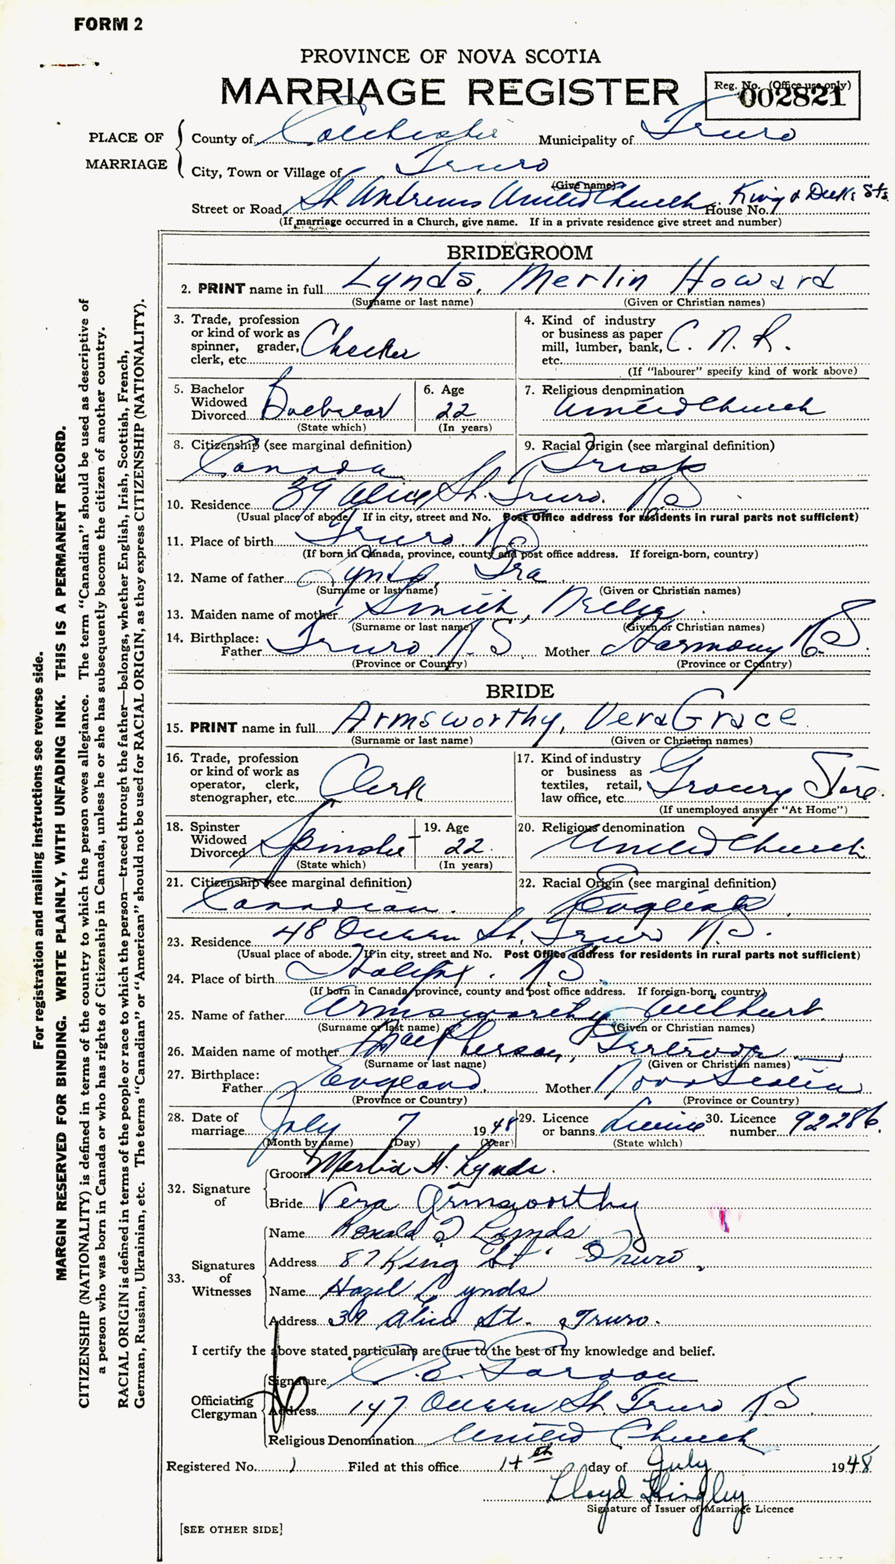 FORM 2
PROVINCE OF NOVA SCOTIA
MARRIAGE REGISTER
Reg. No. (Office use only)
002821
PLACE OF MARRIAGE
County of Colchester Municipality of Truro
City, Town or Village of Truro
(Give name)
Street or Road St Andrews United Church House No. King & Sts.
(If marriage occurred in a Church, give name. If in a private residence give street and number)
BRIDEGROOM
2. PRINT name in full Lynds, Merlin Howard
(Surname or last name) (Given or Christian names)
3. Trade, profession or kind of work as spinner, grader, clerk, etc. Checker
4. Kind of industry or business as paper mill, lumber, bank, etc. C. N. R.
(If "labourer" specify kind of work above)
5. Bachelor Widowed Divorced Bachelor
(State which)
6. Age 22
(In years)
7. Religious denomination United Church
8. Citizenship (see marginal definition) Canada
9. Racial Origin (see marginal definition) Irish
10. Residence 39 Alice St. Truro. N S
(Usual place of abode. If in city, street and No. Post Office address for residents in rural parts not sufficient)
11. Place of birth Truro N S
(If born in Canada, province, county and post office address. If foreign-born, country)
12. Name of father Lynds, Ira
(Surname or last name) (Given or Christian names)
13. Maiden name of mother Smith, Nellie
(Surname or last name) (Given or Christian names)
14. Birthplace: Father Truro N. S Mother Harmony N S
(Province or Country) (Province or Country)
BRIDE
15. PRINT name in full Armsworthy, Vera Grace
(Surname or last name) (Given or Christian names)
16. Trade, profession or kind of work as operator, clerk, stenographer, etc. Clerk
17. Kind of industry or business as textiles, retail, law office, etc. Grocery Store.
(If unemployed answer "At Home")
18. Spinster Widowed Divorced Spinster
(State which)
19. Age 22
(In years)
20. Religious denomination United Church
21. Citizenship (see marginal definition) Canadian.
22. Racial Origin (see marginal definition) English
23. Residence 48 Queen St, Truro N. S.
(Usual place of abode. If in city, street and No. Post Office address for residents in rural parts not sufficient)
24. Place of birth Halifax. N S
(If born in Canada, province, county and post office address. If foreign-born, country)
25. Name of father Armsworthy
(Surname or last name) (Given or Christian names)
26. Maiden name of mother MacPherson, Gertrude
(Surname or last name) (Given or Christian names)
27. Birthplace: Father England Mother Nova Scotia
(Province or Country) (Province or Country)
28. Date of marriage July 7 1948
(Month by name) (Day) (Year)
29. Licence or banns Licence
(State which)
30. Licence number 92286.
32. Signature of
Groom Merlin H. Lynds.
Bride Vera Armsworthy
33. Signatures of Witnesses
Name Ronald Lynds
Address 87 King St Truro,
Name Hazel Lynds
Address 39 Alice St. Truro.
I certify the above stated particulars are true to the best of my knowledge and belief.
Officiating Clergyman
Signature C. E. Gordon
Address 147 Queen St. Truro N S.
Religious Denomination United Church
Registered No. 1 Filed at this office 14th day of July 1948
Lloyd Kingley
Signature of Issuer of Marriage Licence
[SEE OTHER SIDE]
For registration and mailing instructions see reverse side.
MARGIN RESERVED FOR BINDING. WRITE PLAINLY, WITH UNFADING INK. THIS IS A PERMANENT RECORD.
CITIZENSHIP (NATIONALITY) is defined in terms of the country to which the person owes allegiance. The term "Canadian" should be used as descriptive of
a person who was born in Canada or who has rights of Citizenship in Canada, unless he or she has subsequently become the citizen of another country.
RACIAL ORIGIN is defined in terms of the people or race to which the person—traced through the father—belongs, whether English, Irish, Scottish, French,
German, Russian, Ukrainian, etc. The terms "Canadian" or "American" should not be used for RACIAL ORIGIN, as they express CITIZENSHIP (NATIONALITY).